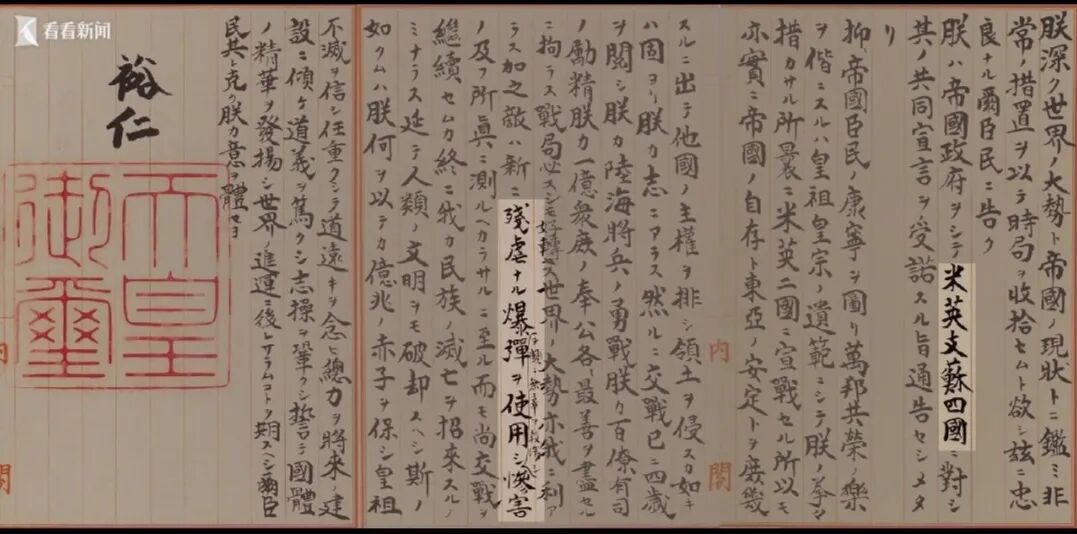 看看新闻
朕深ク世界ノ大勢ト帝國ノ現狀トニ鑑ミ非
常ノ措置ヲ以テ時局ヲ收拾セムト欲シ玆ニ忠
良ナル爾臣民ニ告ク
朕ハ帝國政府ヲシテ米英支蘇四國ニ對シ
其ノ共同宣言ヲ受諾スル旨通告セシメタ
リ
抑〻帝國臣民ノ康寧ヲ圖リ萬邦共榮ノ樂
ヲ偕ニスルハ皇祖皇宗ノ遺範ニシテ朕ノ拳〻
措カサル所曩ニ米英二國ニ宣戰セル所以モ
亦實ニ帝國ノ自存ト東亞ノ安定トヲ庶幾
内閣
スルニ出テ他國ノ主權ヲ排シ領土ヲ侵スカ如キ
ハ固ヨリ朕カ志ニアラス然ルニ交戰已ニ四歲
ヲ閱シ朕カ陸海將兵ノ勇戰朕カ百僚有司
ノ勵精朕カ一億衆庶ノ奉公各〻最善ヲ盡セル
ニ拘ラス戰局必スシモ好轉セス世界ノ大勢亦我ニ利ア
ラス加之敵ハ新ニ殘虐ナル爆彈ヲ使用シ慘害
ノ及フ所眞ニ測ルヘカラサルニ至ル而モ尚交戰ヲ
繼續セムカ終ニ我カ民族ノ滅亡ヲ招來スルノ
ミナラス延テ人類ノ文明ヲモ破却スヘシ斯ノ
如クムハ朕何ヲ以テカ億兆ノ赤子ヲ保シ皇祖
不滅ヲ信シ任重クシテ道遠キヲ念ヒ總力ヲ將來ノ建
設ニ傾ケ道義ヲ篤クシ志操ヲ鞏クシ誓テ國體
ノ精華ヲ發揚シ世界ノ進運ニ後レサラムコトヲ期スヘシ爾臣
民其レ克ク朕カ意ヲ體セヨ
裕仁
天皇
御璽
内閣